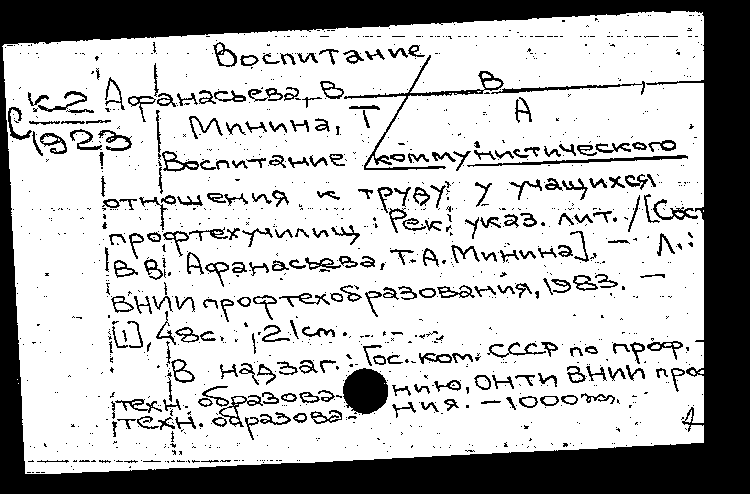 Воспитание
Афанасьева, В. В
К-2
Минина, Т А
С 1923
Воспитание коммунистического
отношения к труду у учащихся
профтехучилищ : Рек. указ. лит. / [Сост
В.В. Афанасьева, Т.А. Минина]. – Л.:
ВНИИ профтехобразования, 1983. –
[1], 48с. ; 21см.
В надзаг.: Гос. ком. СССР по проф.-
техн. образова- нию, ОНТИ ВНИИ проф
техн. образова- ния. – 1000